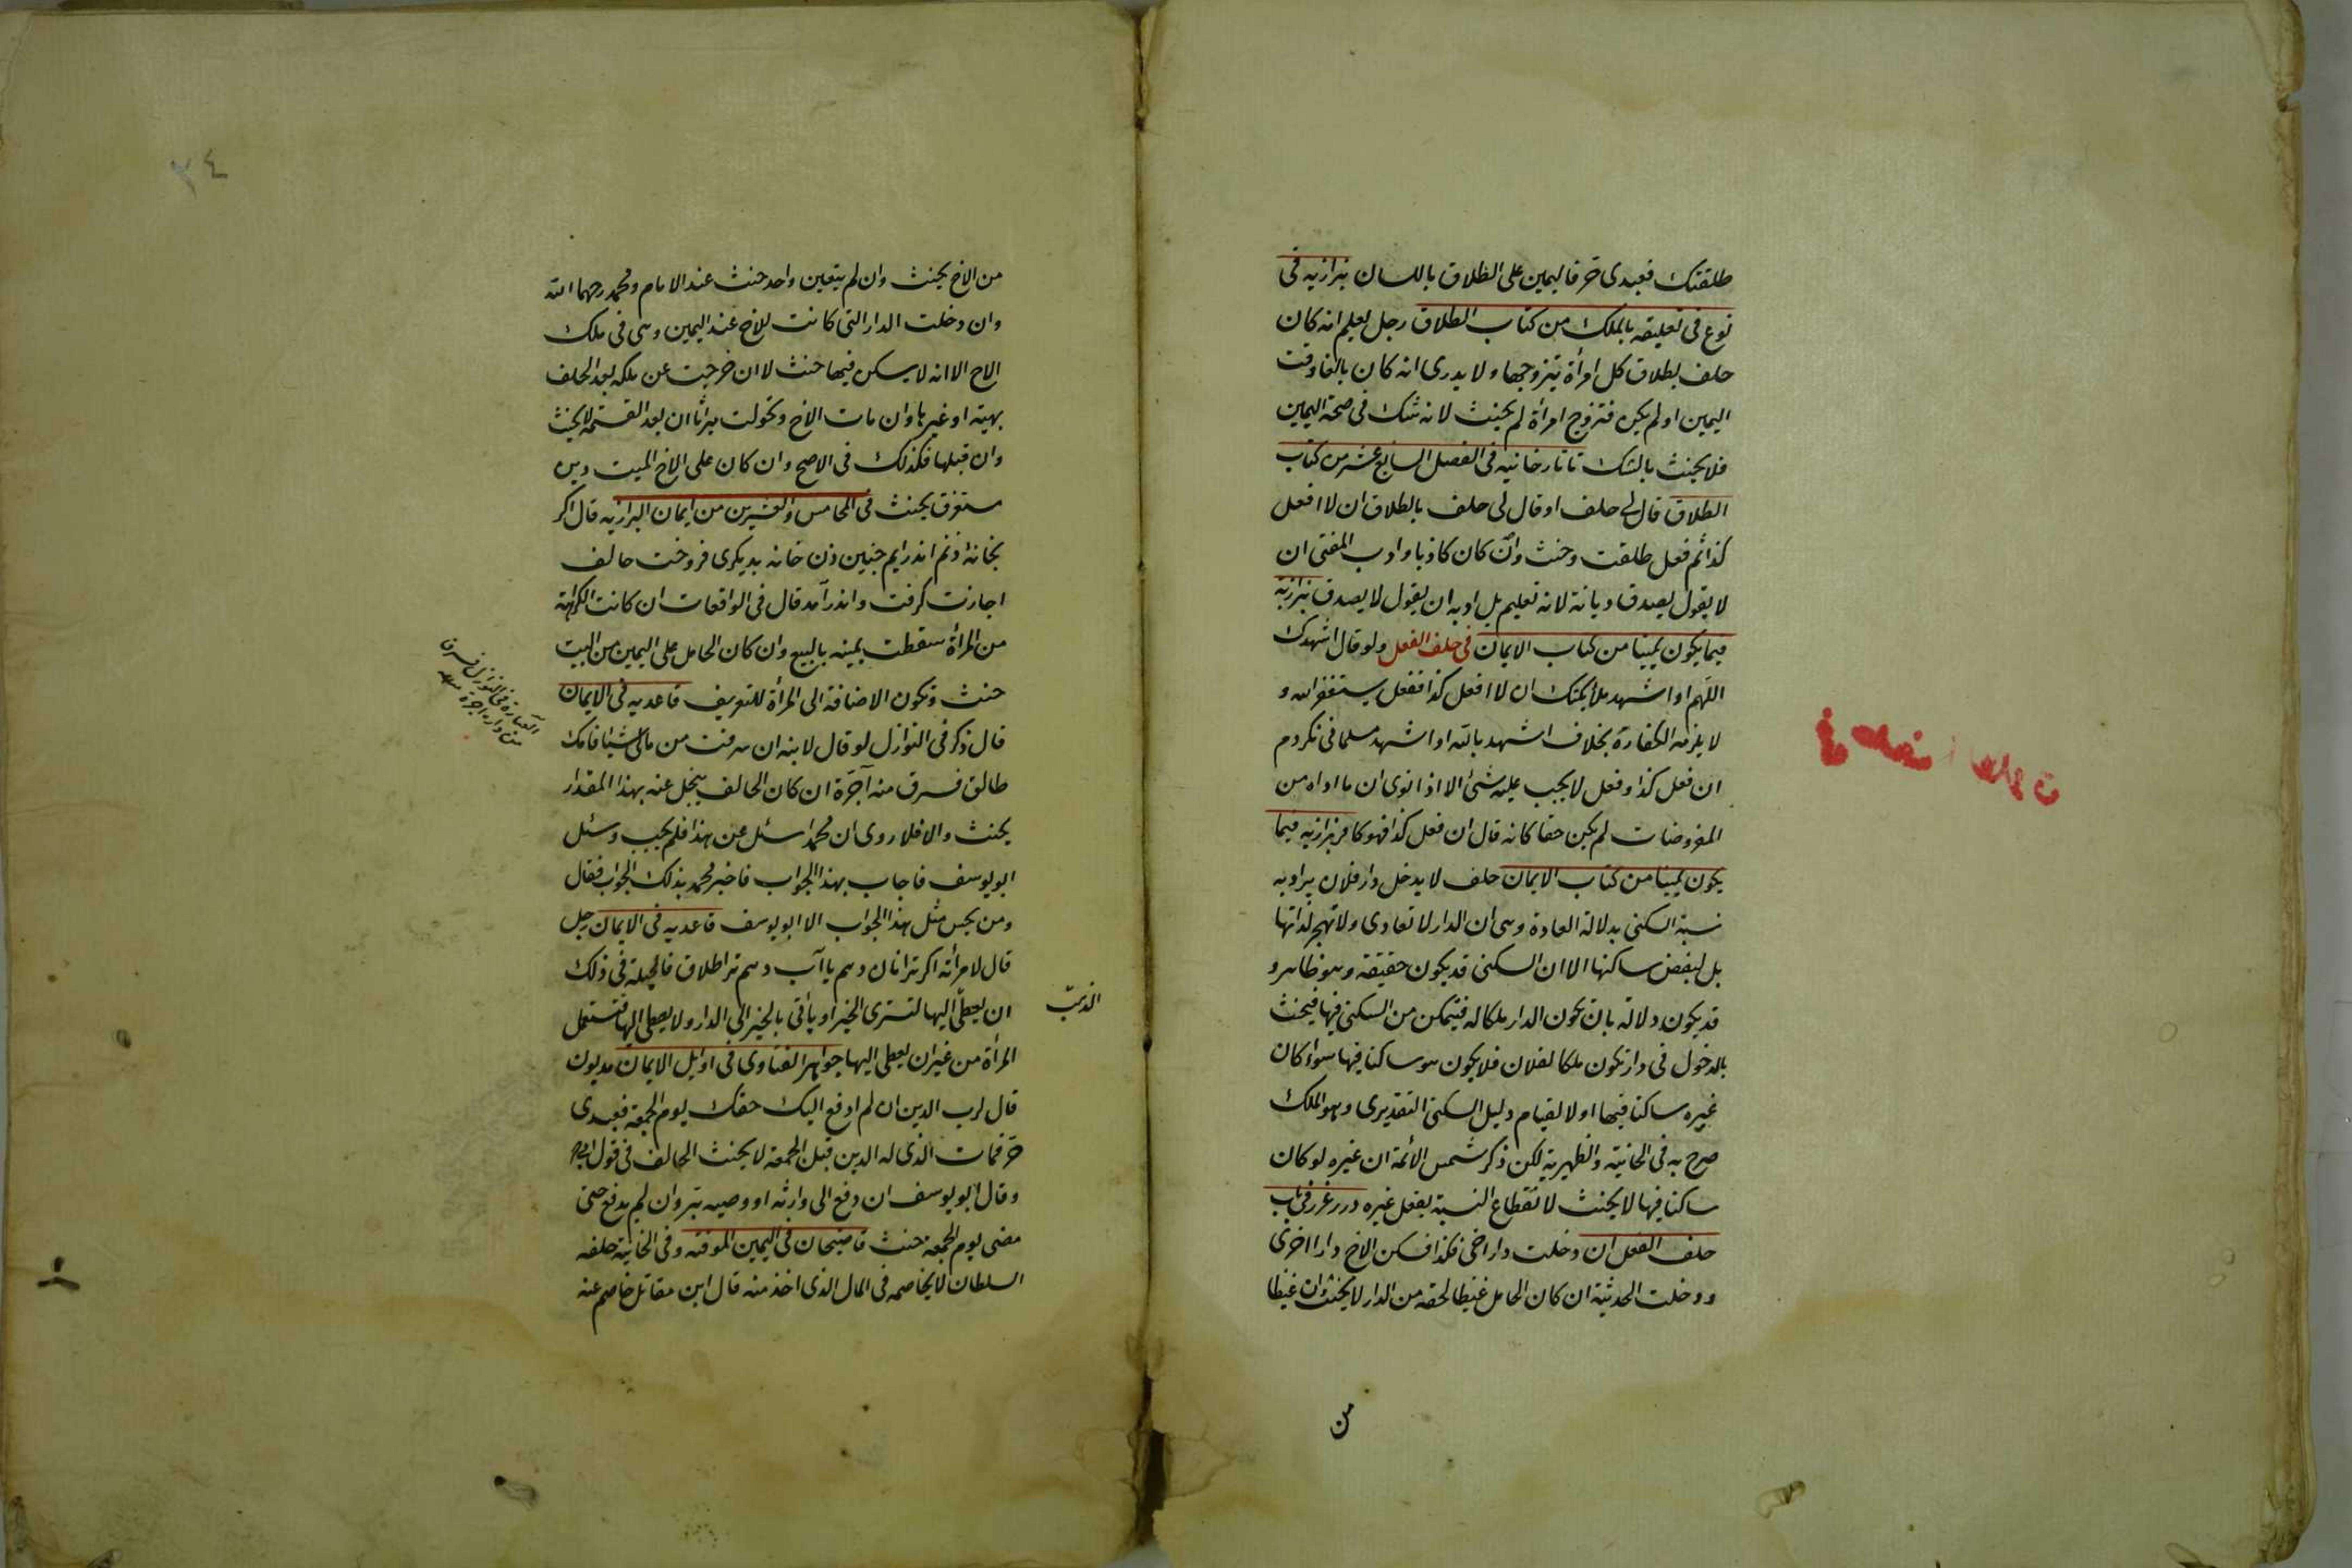 طلقتك فعبدى حر فاليمين على الطلاق باللسان بزازيه فى
نوع فى تعليقه بالملك من كتاب الطلاق رجل يعلم انه كان
حلف بطلاق كل امرأة يتزوجها ولا يدرى انه كان بالغا وقت
اليمين او لم يكن فتزوج امرأة لم يحنث لانه شك فى صحة اليمين
فلا يحنث بالشك تاتارخانيه فى الفصل السابع عشر من كتاب
الطلاق قال لى حلف او قال لى حلف بالطلاق ان لا افعل
كذا ثم فعل طلقت وحنث وان كان كاذبا وادب المفتى ان
لا يقول يصدق ديانة لانه تعليم بل ادبه ان يقول لا يصدق بزازية
فيما يكون يمينا من كتاب الايمان فى حلف الفعل ولو قال اشهدك
اللهم او اشهد ملائكتك ان لا افعل كذا ففعل يستغفر الله و
لا يلزمه الكفارة بخلاف اشهد بالله او اشهد مسلمانى نكردم
ان فعل كذا وفعل لا يجب عليه شئ الا اذا نوى ان ما اداه من
المفروضات لم يكن حقا كانه قال ان فعل كذا فهو كافر بزازيه فيما
يكون يمينا من كتاب الايمان حلف لا يدخل دار فلان يراد به
نسبة السكنى بدلالة العادة وهى ان الدار لا تعادى ولا تهجر لذاتها
بل لبغض ساكنها الا ان السكنى قد يكون حقيقة وهو ظاهر و
قد يكون دلالة بان يكون الدار ملكا له فيتمكن من السكنى فيها فيحنث
بالدخول فى دار تكون ملكا لفلان فلا يكون هو ساكنا فيها سواء كان
غيره ساكنا فيها او لا لقيام دليل السكنى التقديرى وهو الملك
صرح به فى الخانية والظهيرية لكن ذكر شمس الائمة ان غيره لو كان
ساكنا فيها لا يحنث لانقطاع النسبة بفعل غيره درر غرر فى باب
حلف الفعل ان دخلت دار اخى فكذا فسكن الاخ دارا اخرى
ودخلت الحديثة ان كان الحامل غيظا لحقه من الدار لا يحنث وان غيظا
من
٣٤
من الاخ يحنث وان لم يتعين واحد حنث عند الامام ومحمد رحهما الله
وان دخلت الدار التى كانت للاخ عند اليمين وهى فى ملك
الاخ الا انه لا يسكن فيها حنث لا ان خرجت عن ملكه بعد الحلف
بهبة او غيرها وان مات الاخ وتحولت ميراثا ان بعد القسمة لا يحنث
وان قبلها فكذلك فى الاصح وان كان على الاخ الميت دين
مستغرق يحنث فى الخامس والعشرين من ايمان البزازيه قال اكر
بخانه زنم اندرايم چنين زن خانه بديكرى فروخت حالف
اجازت كرفت واندرآمد قال فى الواقعات ان كانت الكراهة
من المرأة سقطت يمينه بالبيع وان كان الحامل على اليمين من البيت
حنث وتكون الاضافة الى المرأة للتعريف قاعديه فى الايمان
قال ذكر فى النوازل لو قال لابنه ان سرقت من مالى شيئا فامك
طالق فسرق منه آجرة ان كان الحالف يبخل عنه بهذا المقدار
يحنث والا فلا روى ان محمدا سئل عن هذا فلم يجب وسئل
ابو يوسف فاجاب بهذا الجواب فاخبر محمد بذلك الجواب فقال
ومن يحسن مثل هذا الجواب الا ابو يوسف قاعديه فى الايمان رجل
قال لامرأته اكر ترا نان دهم يا آب دهم ترا طلاق فالحيلة فى ذلك
ان يعطى اليها لتشترى الخبز او يأتى بالخبز الى الدار ولا يعطى اليها فتستعمل
المرأة من غير ان يعطى اليها جواهر الفتاوى فى اوايل الايمان مديون
قال لرب الدين ان لم ادفع اليك حقك يوم الجمعة فعبدى
حر فمات الذى له الدين قبل الجمعة لا يحنث الحالف فى قول
وقال ابو يوسف ان دفع الى وارثه او وصيه بر وان لم يدفع حتى
مضى يوم الجمعة حنث قاضيخان فى اليمين الموقته وفى الخانية حلفه
السلطان لا يخاصمه فى المال الذى اخذ منه قال ابن مقاتل خاصم عنه